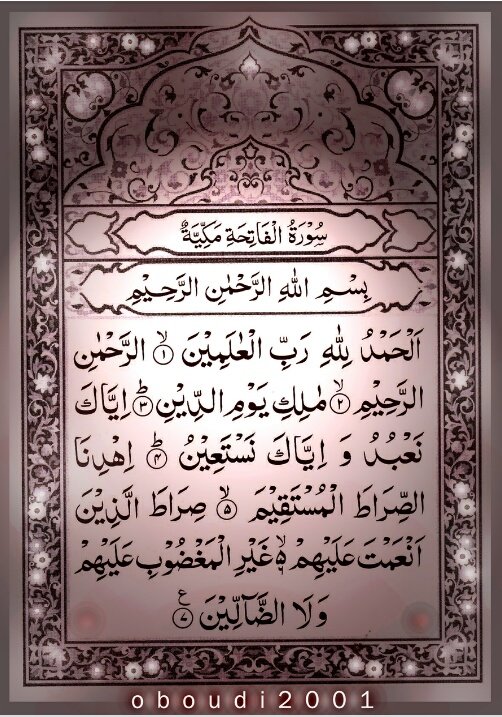 سُوْرَةُ الْفَاتِحَةِ مَكِّيَّةٌ
بِسْمِ اللهِ الرَّحْمٰنِ الرَّحِيْمِ
اَلْحَمْدُ لِلّٰهِ رَبِّ الْعٰلَمِيْنَ ۙ﴿۱﴾ الرَّحْمٰنِ
الرَّحِيْمِ ۙ﴿۲﴾ مٰلِكِ يَوْمِ الدِّيْنِ ؕ﴿۳﴾ اِيَّاكَ
نَعْبُدُ وَ اِيَّاكَ نَسْتَعِيْنُ ؕ﴿۴﴾ اِهْدِنَا
الصِّرَاطَ الْمُسْتَقِيْمَ ۙ﴿۵﴾ صِرَاطَ الَّذِيْنَ
اَنْعَمْتَ عَلَيْهِمْ ۙ۬ۦ غَيْرِ الْمَغْضُوْبِ عَلَيْهِمْ
وَلَا الضَّآلِّيْنَ ﴿۷﴾ ع
oboudi2001